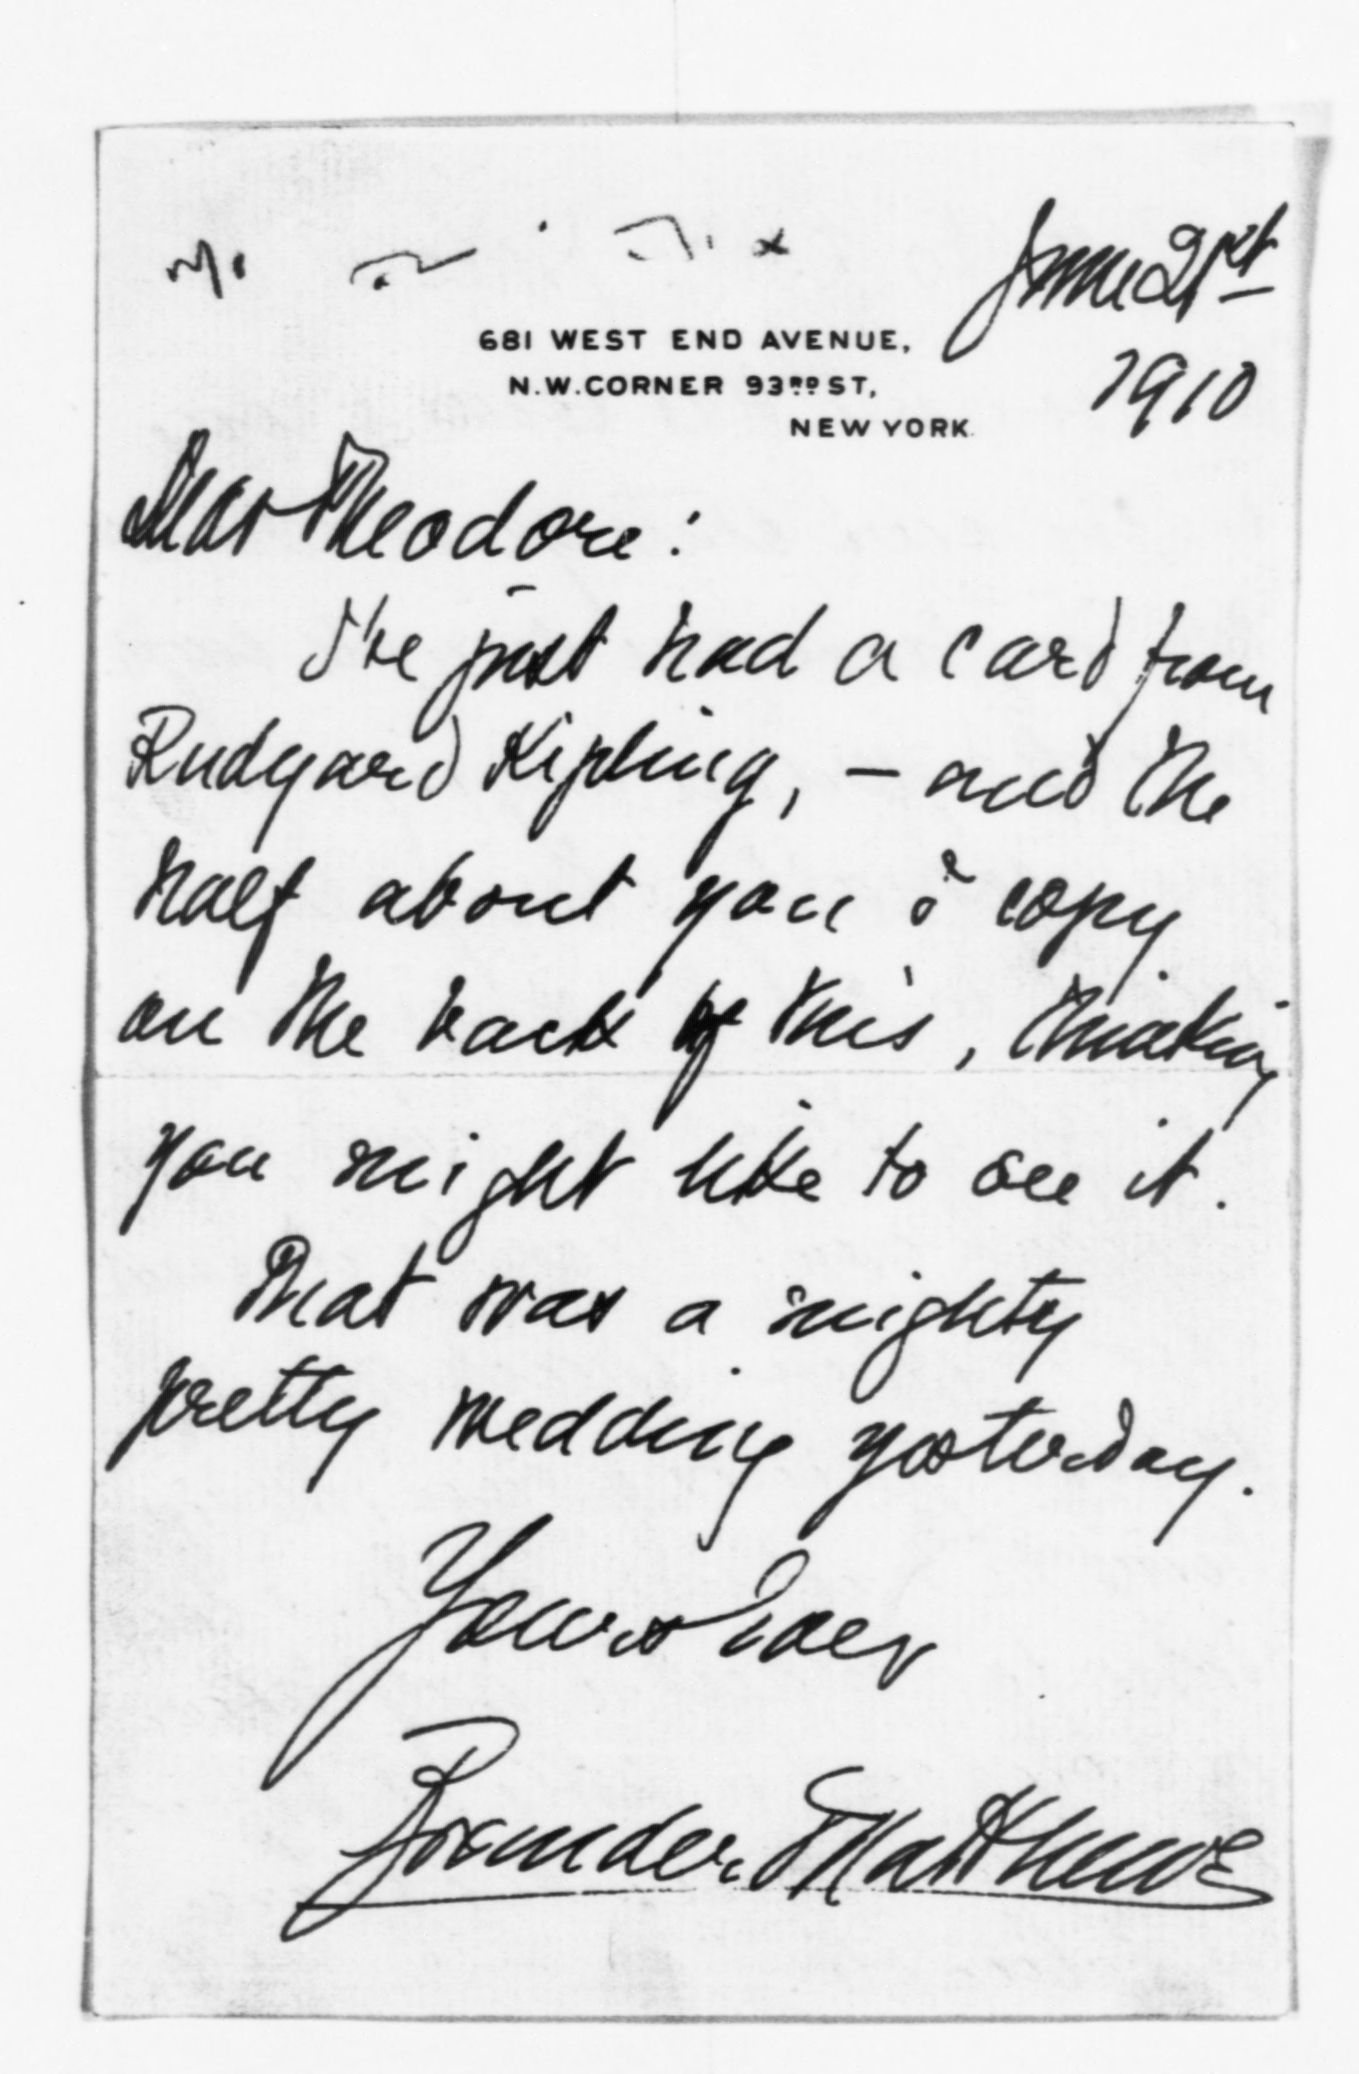 June 21st
681 WEST END AVENUE,
N.W. CORNER 93RD ST,
1910
NEW YORK.
Dear Theodore:
I've just had a card from
Rudyard Kipling, — and the
half about you I copy
on the back of this, thinking
you might like to see it.
That was a mighty
pretty wedding yesterday.
Yours ever
Brander Matthews